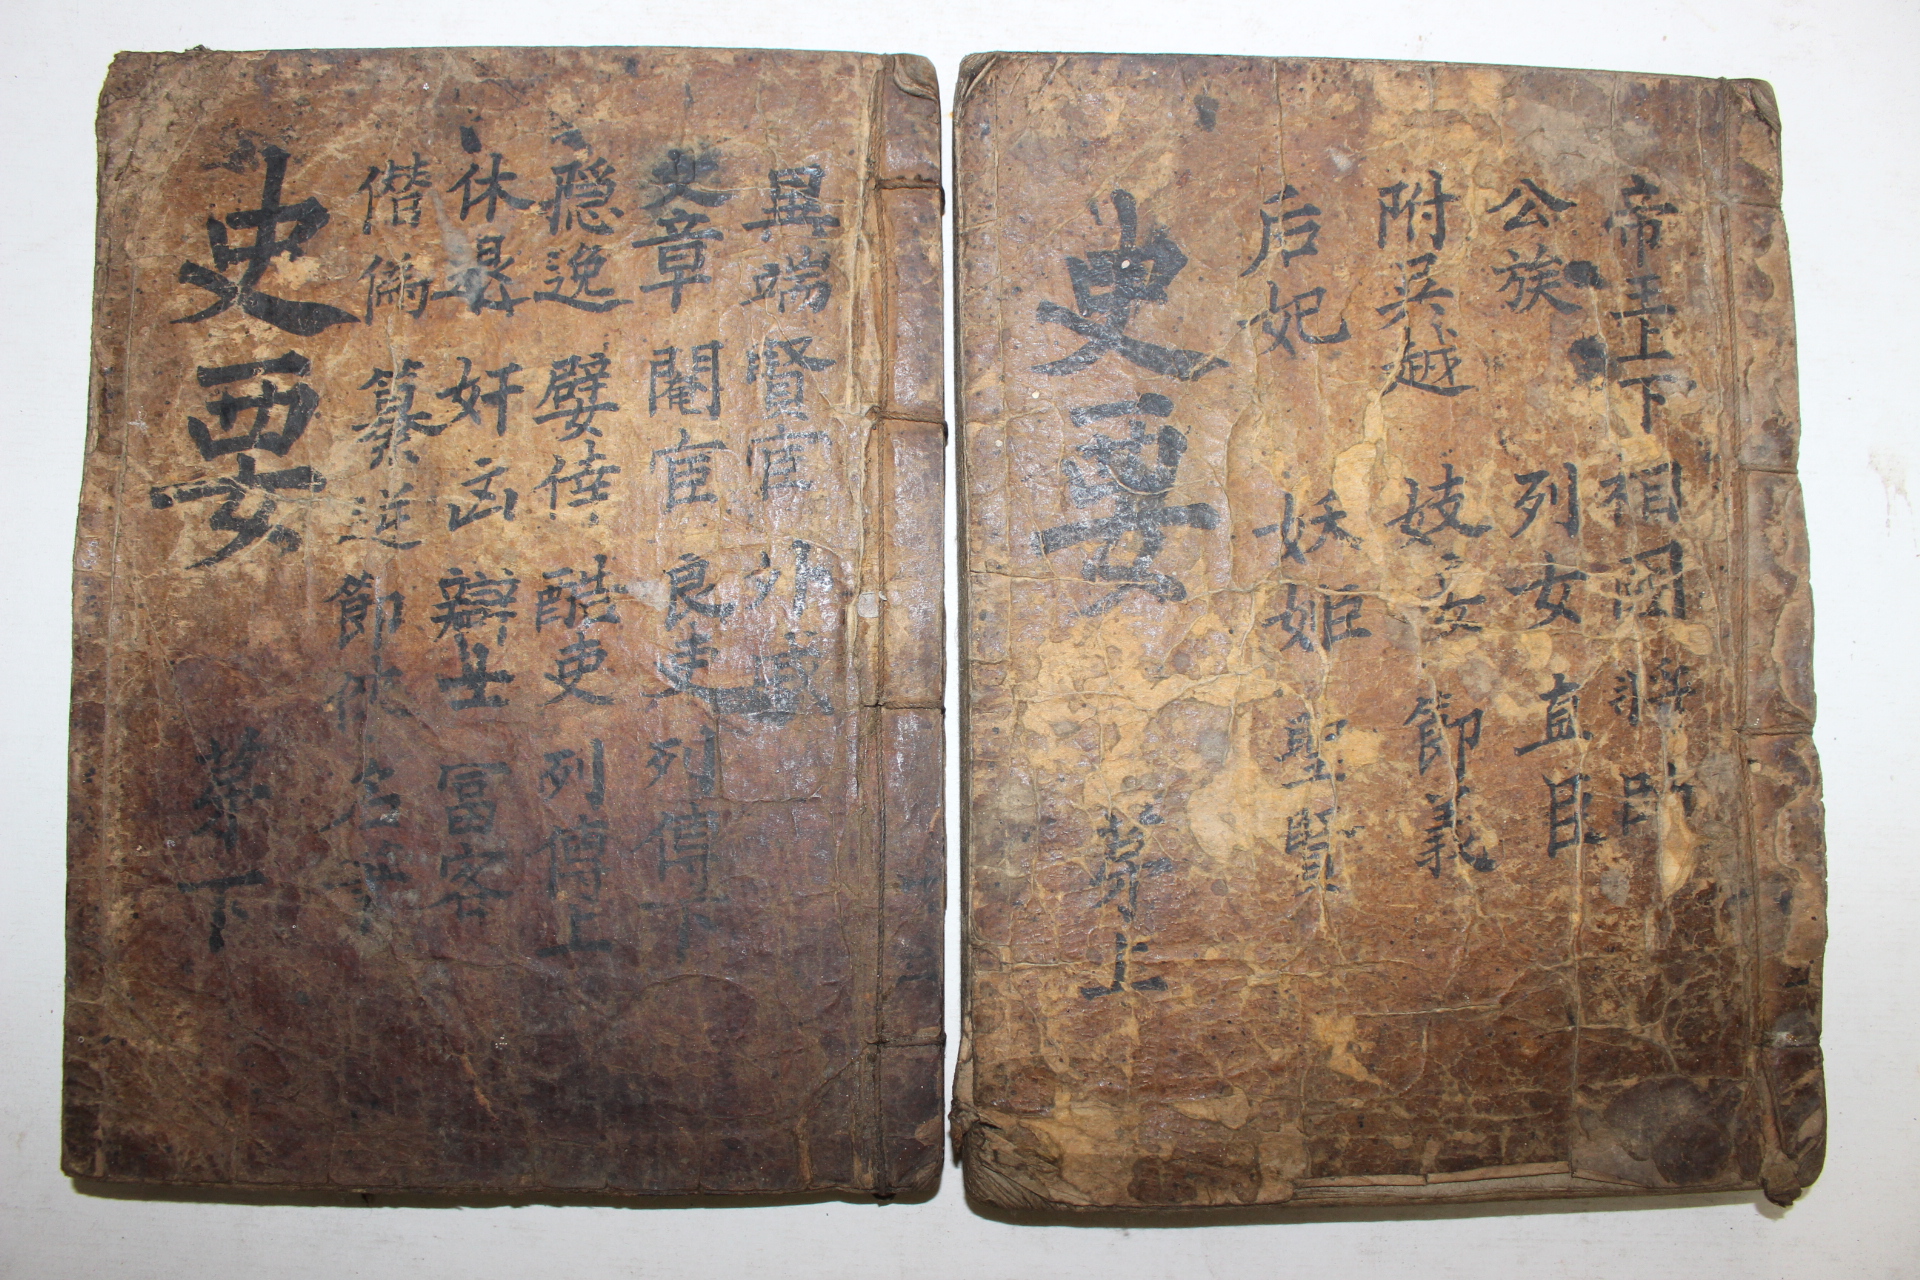 帝王上下 相國 將帥
公族 列女 直臣
附吳越 妓女 節義
后妃 妖姬 聖賢
史要 亨上
異端 賢宦 外戚
文章 閹宦 良吏 列傳下
隱逸 嬖倖 酷吏 列傳上
休退 奸凶 辯士 富客
僭僞 簒逆 節俠
史要 下